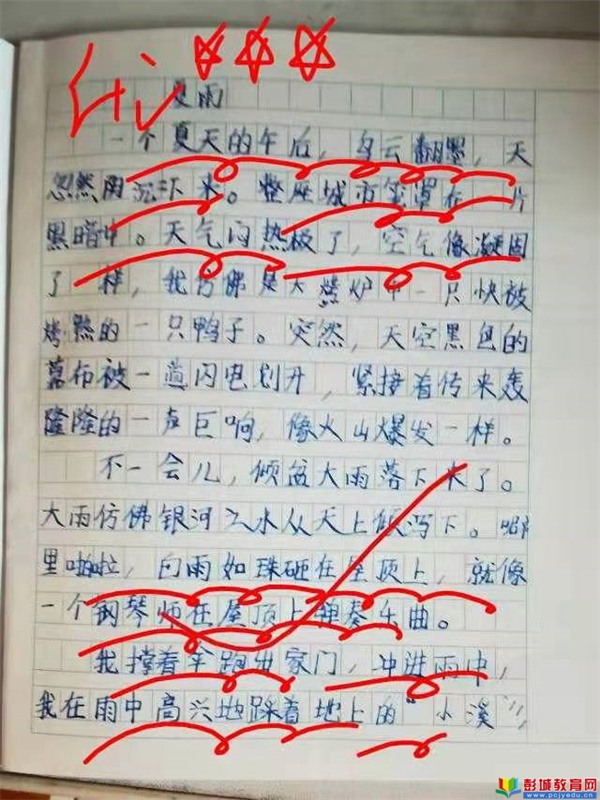 优
夏雨
一个夏天的午后，乌云翻墨，天
忽然阴沉下来。整座城市笼罩在一片
黑暗中。天气闷热极了，空气像凝固
了一样，我仿佛是大烤炉中一只快被
烤熟的一只鸭子。突然，天空黑色的
幕布被一道闪电划开，紧接着传来轰
隆隆的一声巨响，像火山爆发一样。
不一会儿，倾盆大雨落下来了。
大雨仿佛银河之水从天上倾泻下。噼
里啪啦，白雨如珠砸在屋顶上，就像
一个钢琴师在屋顶上弹奏乐曲。
我撑着伞跑出家门，冲进雨中，
我在雨中高兴地踩着地上的“小溪”，
彭城教育网
www.pcjyedu.cn